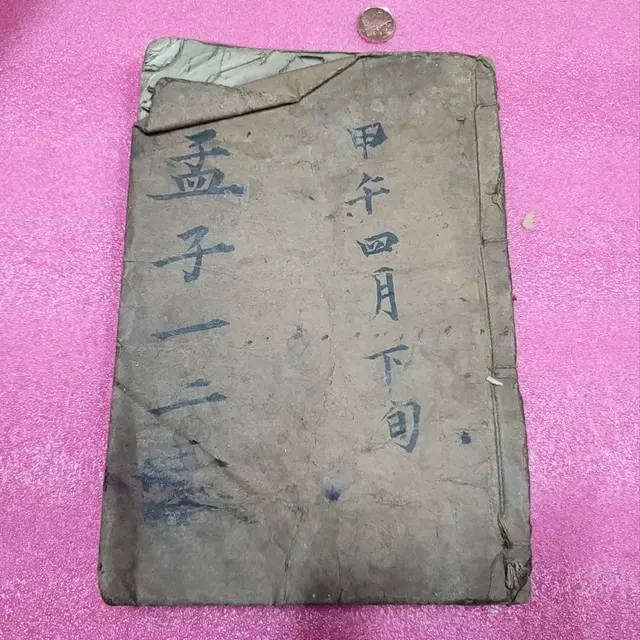 甲午四月下旬
孟子一二